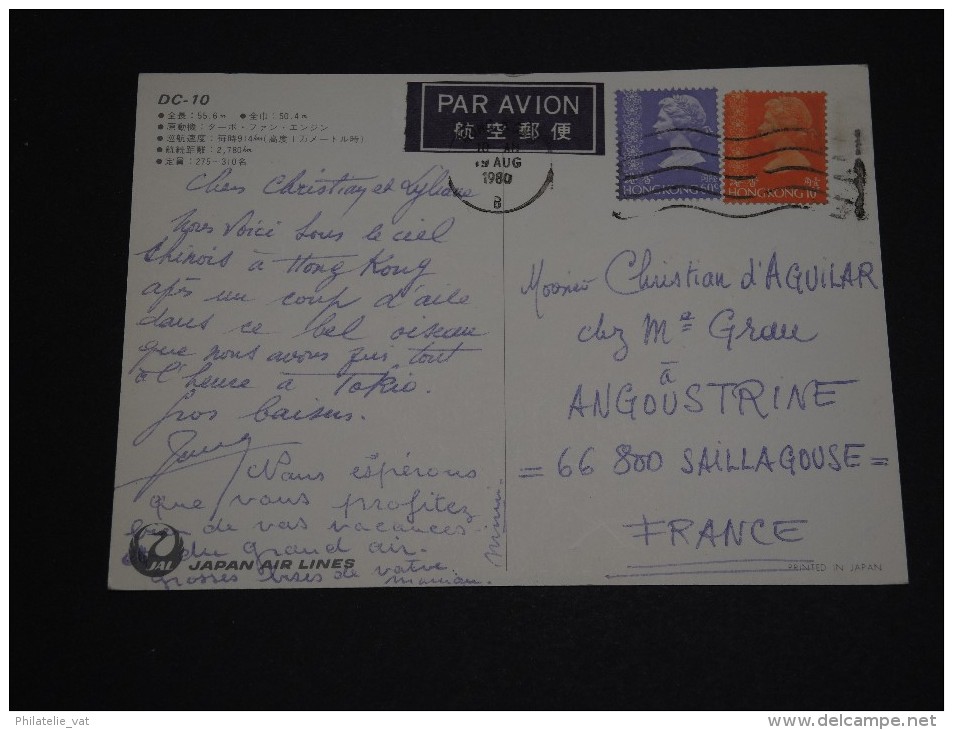 DC-10
●全長：55.6m ●全巾：50.4m
●原動機：ターボ・ファン・エンジン
●巡航速度：毎時914km(高度1万メートル時)
●航続距離：2,780km
●定員：275-310名
PAR AVION
航空郵便
19 AUG
1980
B
HONG KONG 50¢
HONG KONG
Chers Christian et Lyliane
Nous voici sous le ciel
Chinois à Hong Kong
après un coup d'aile
dans ce bel oiseau
que nous avons pris tout
à l'heure à Tokio.
Gros baisers.
Nous espérons
que vous profitez
de vos vacances
du grand air.
grosses bises de votre
maman.
Monsieur Christian d'AGUILAR
chez Me Grau
à
ANGOUSTRINE
= 66 800 SAILLAGOUSE =
FRANCE
JAL JAPAN AIR LINES
PRINTED IN JAPAN
Philatelie_vat
www.delcampe.net